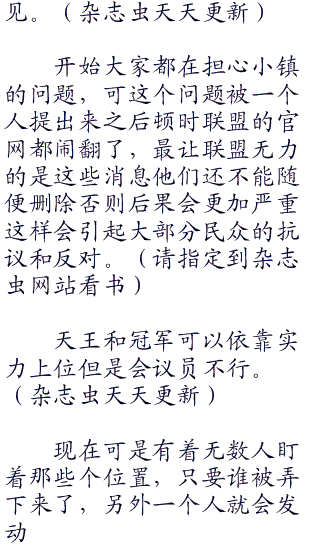 见。（杂志虫天天更新）
开始大家都在担心小镇
的问题，可这个问题被一个
人提出来之后顿时联盟的官
网都闹翻了，最让联盟无力
的是这些消息他们还不能随
便删除否则后果会更加严重
这样会引起大部分民众的抗
议和反对。（请指定到杂志
虫网站看书）
天王和冠军可以依靠实
力上位但是会议员不行。
（杂志虫天天更新）
现在可是有着无数人盯
着那些个位置，只要谁被弄
下来了，另外一个人就会发
动